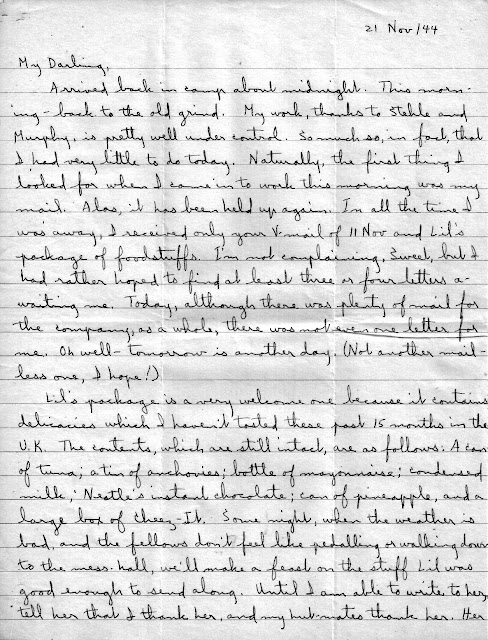 21 Nov/44
My Darling,
Arrived back in camp about midnight. This morn-
ing - back to the old grind. My work, thanks to Stehle and
Murphy, is pretty well under control. So much so, in fact, that
I had very little to do today. Naturally, the first thing I
looked for when I came in to work this morning was my
mail. Alas, it has been held up again. In all the time I
was away, I received only your V-mail of 11 Nov and Lil's
package of foodstuffs. I'm not complaining, Sweet, but I
had rather hoped to find at least three or four letters a-
waiting me. Today, although there was plenty of mail for
the company, as a whole, there was not even one letter for
me. Oh well - tomorrow is another day. (Not another mail-
less one, I hope!)
Lil's package is a very welcome one because it contains
delicacies which I haven't tasted these past 15 months in the
U.K. The contents, which are still intact, are as follows: A can
of tuna; a tin of anchovies; bottle of mayonnaise; condensed
milk; Nestle's instant chocolate; can of pineapple, and a
large box of Cheez-It. Some night, when the weather is
bad, and the fellows don't feel like pedalling or walking down
to the mess-hall, we'll make a feast on the stuff Lil was
good enough to send along. Until I am able to write to her,
tell her that I thank her, and my hut-mates thank her. Her